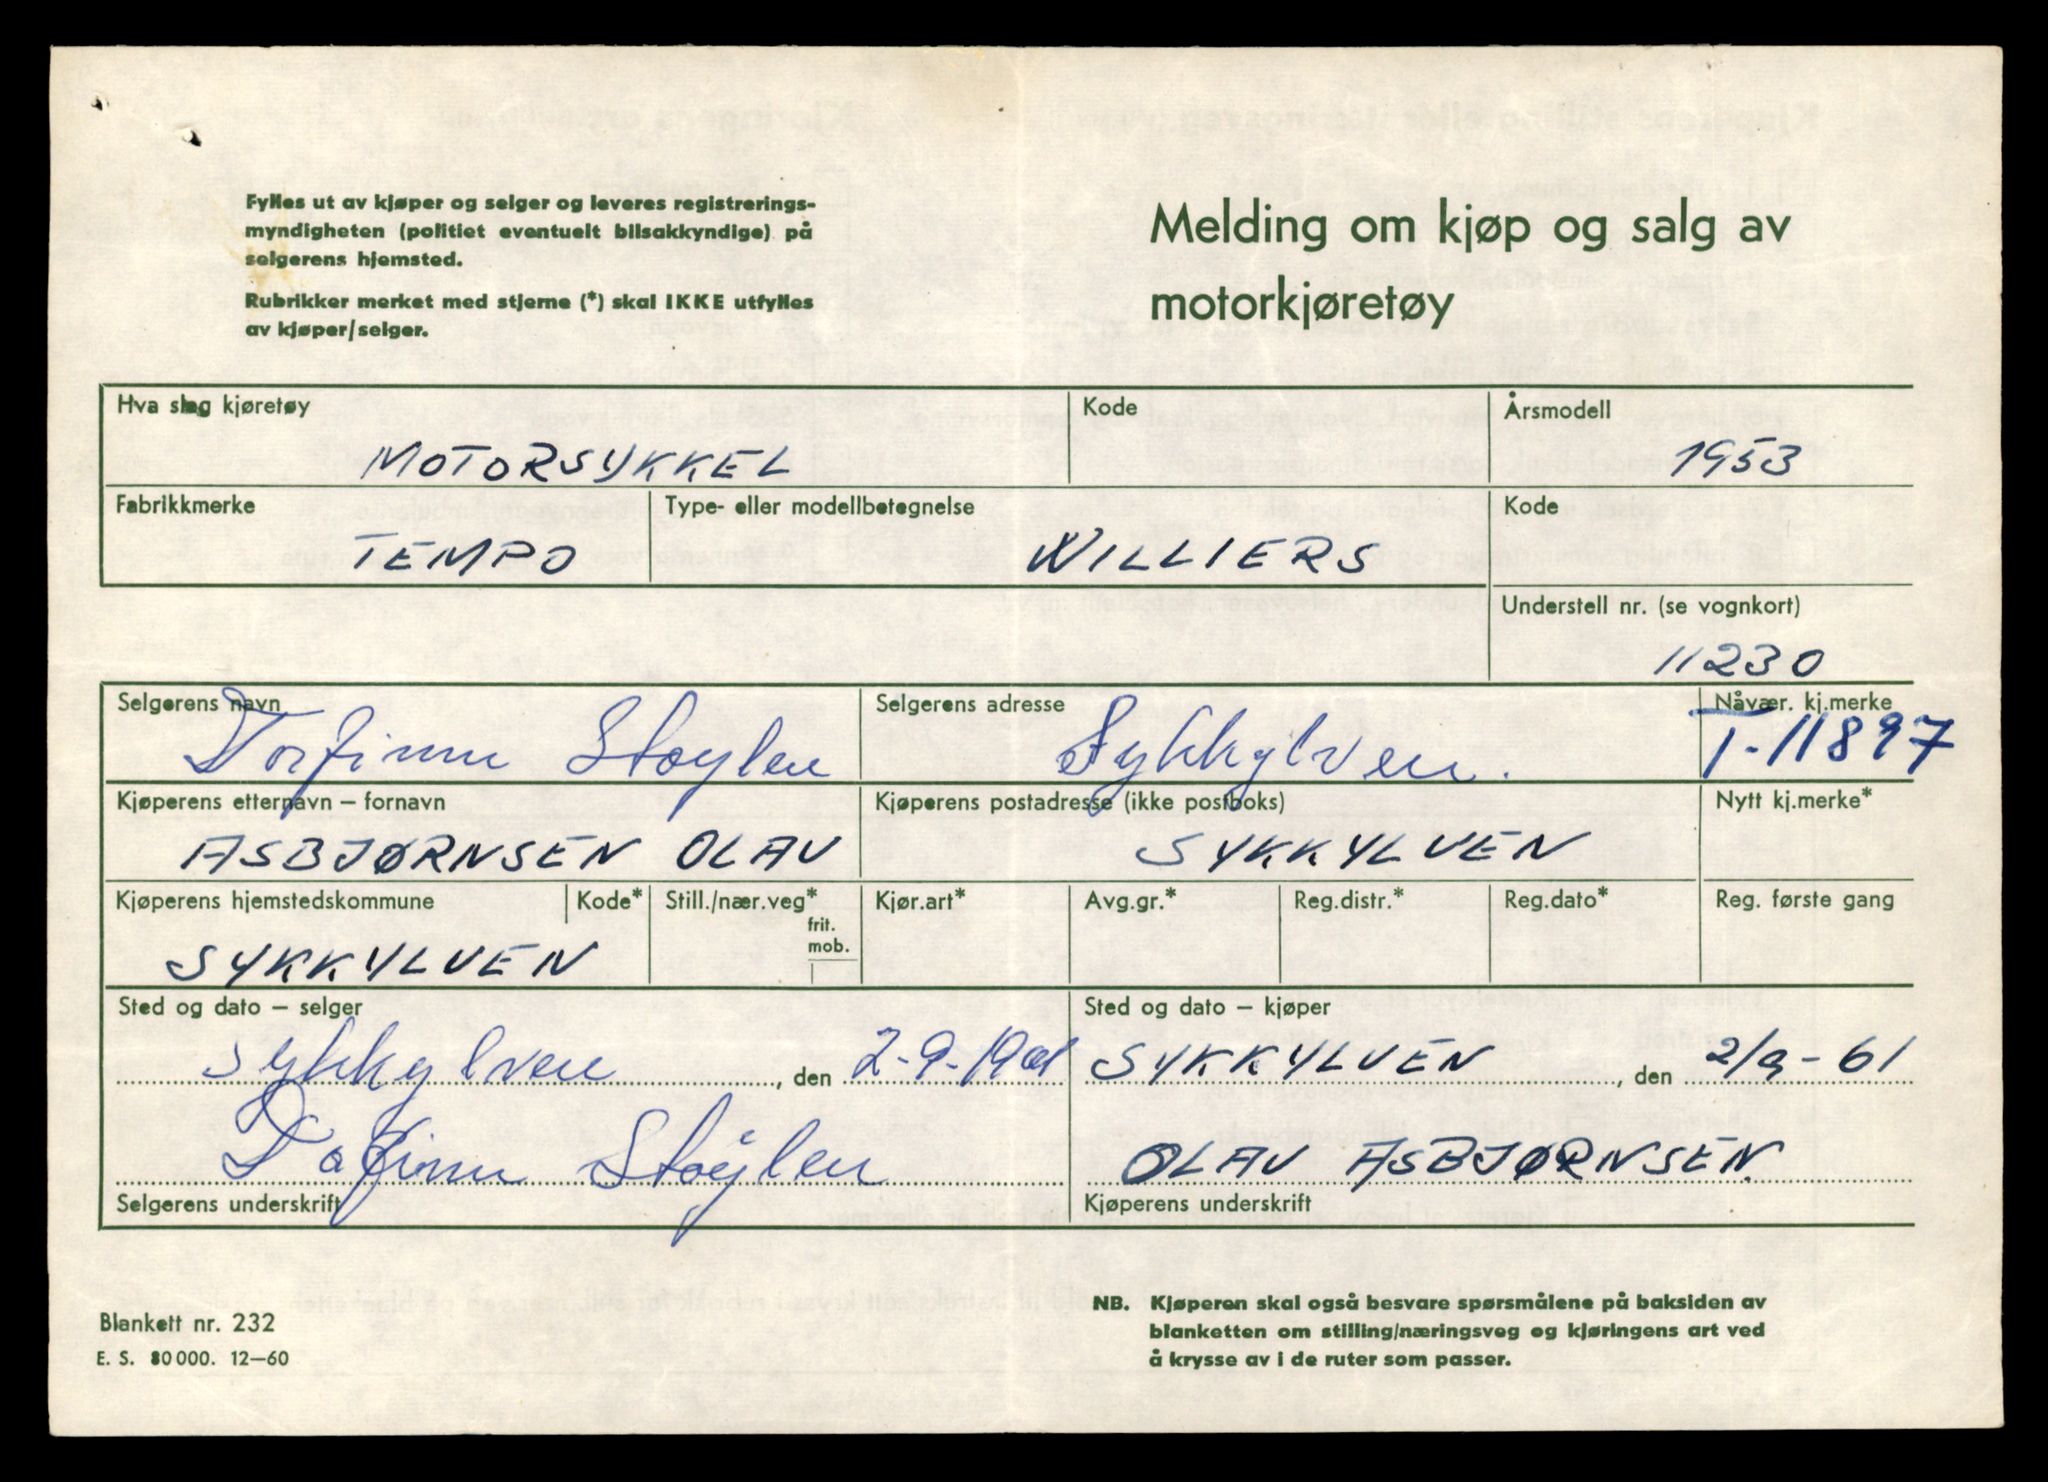 Fylles ut av kjøper og selger og leveres registrerings-
myndigheten (politiet eventuelt bilsakkyndige) på
selgerens hjemsted.
Rubrikker merket med stjerne (*) skal IKKE utfylles
av kjøper/selger.
Melding om kjøp og salg av
motorkjøretøy
Hva slag kjøretøy
MOTORSYKKEL
Kode
Årsmodell
1953
Fabrikkmerke
TEMPO
Type- eller modellbetegnelse
WILLIERS
Kode
Understell nr. (se vognkort)
11230
Selgerens navn
Torfinn Støylen
Selgerens adresse
Sykkylven.
Nåvær. kj.merke
T-11897
Kjøperens etternavn – fornavn
ASBJØRNSEN OLAV
Kjøperens postadresse (ikke postboks)
SYKKYLVEN
Nytt kj.merke*
Kjøperens hjemstedskommune
SYKKYLVEN
Kode*
Still./nær.veg*
frit.
mob.
Kjør.art*
Avg.gr.*
Reg.distr.*
Reg.dato*
Reg. første gang
Sted og dato – selger
Sykkylven, den 2-9-1961
Torfinn Støylen
Selgerens underskrift
Sted og dato – kjøper
SYKKYLVEN, den 2/9-61
OLAV ASBJØRNSEN.
Kjøperens underskrift
Blankett nr. 232
E. S. 80 000. 12–60
NB. Kjøperen skal også besvare spørsmålene på baksiden av
blanketten om stilling/næringsveg og kjøringens art ved
å krysse av i de ruter som passer.